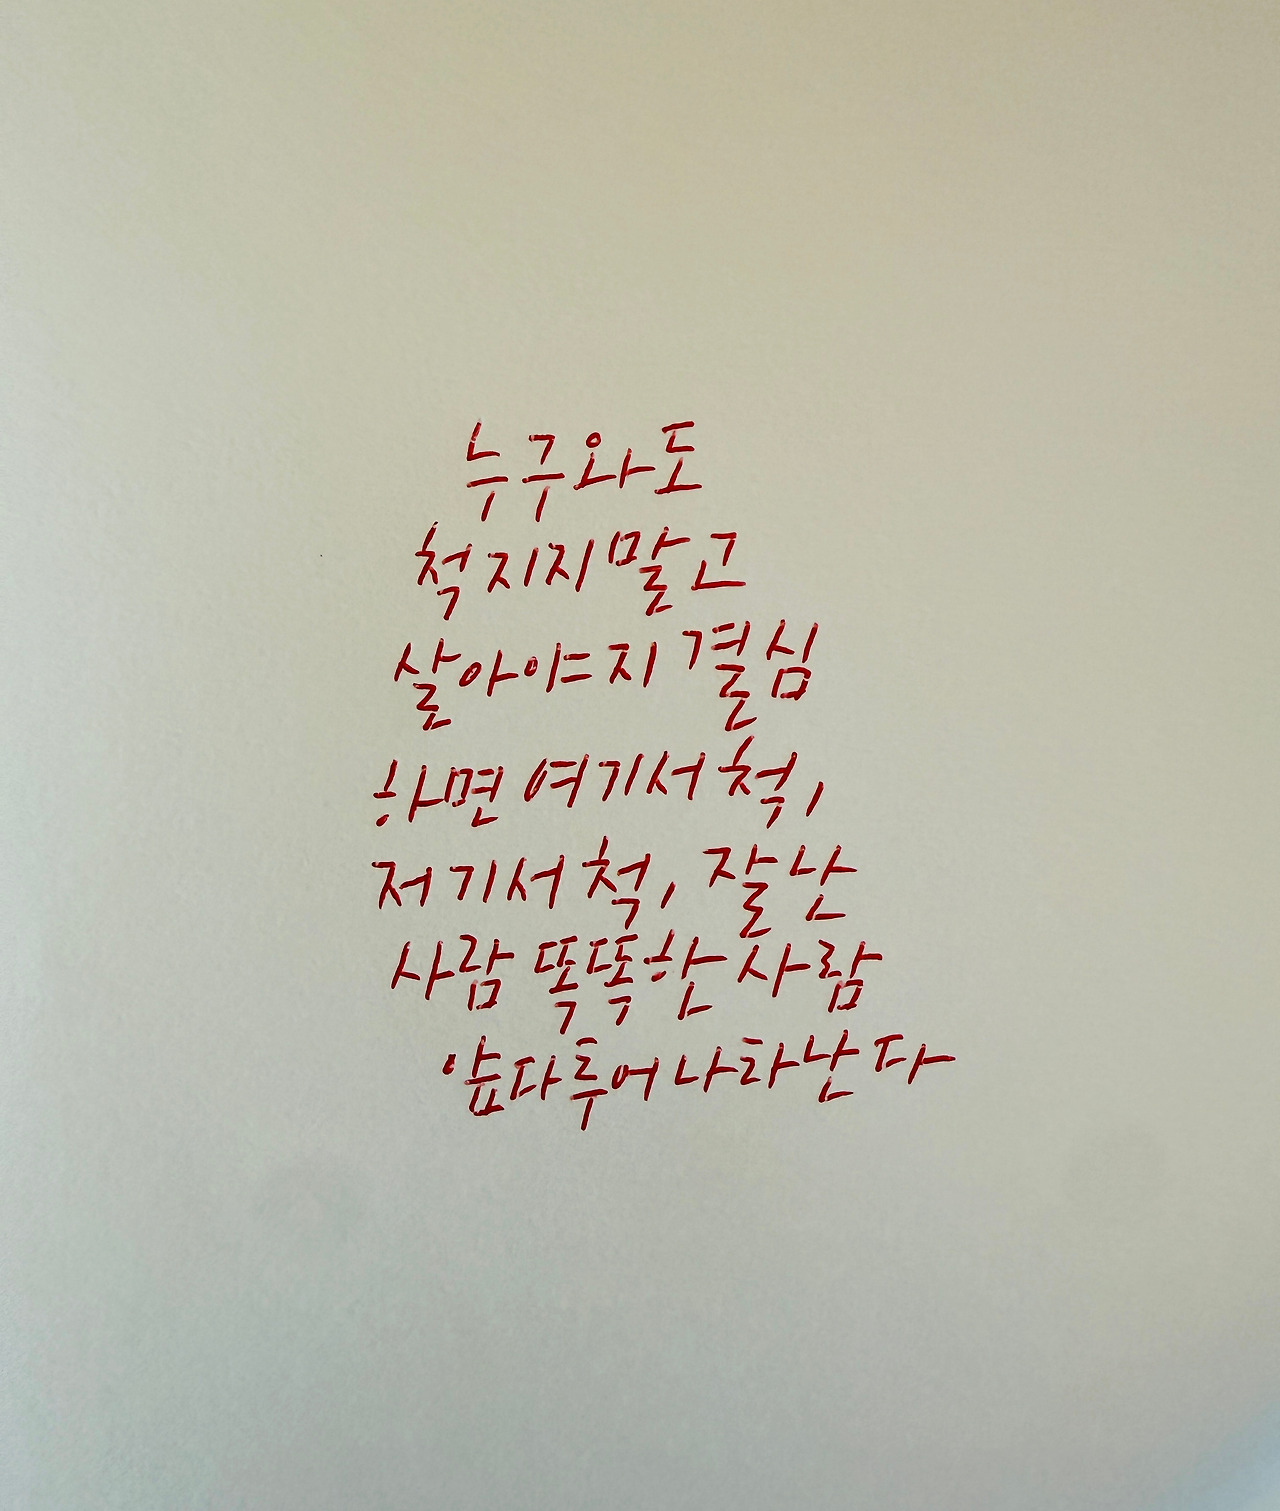 누구와도
척지지 말고
살아야지 결심
하면 여기서 척,
저기서 척, 잘난
사람 똑똑한 사람
앞다투어 나타난다